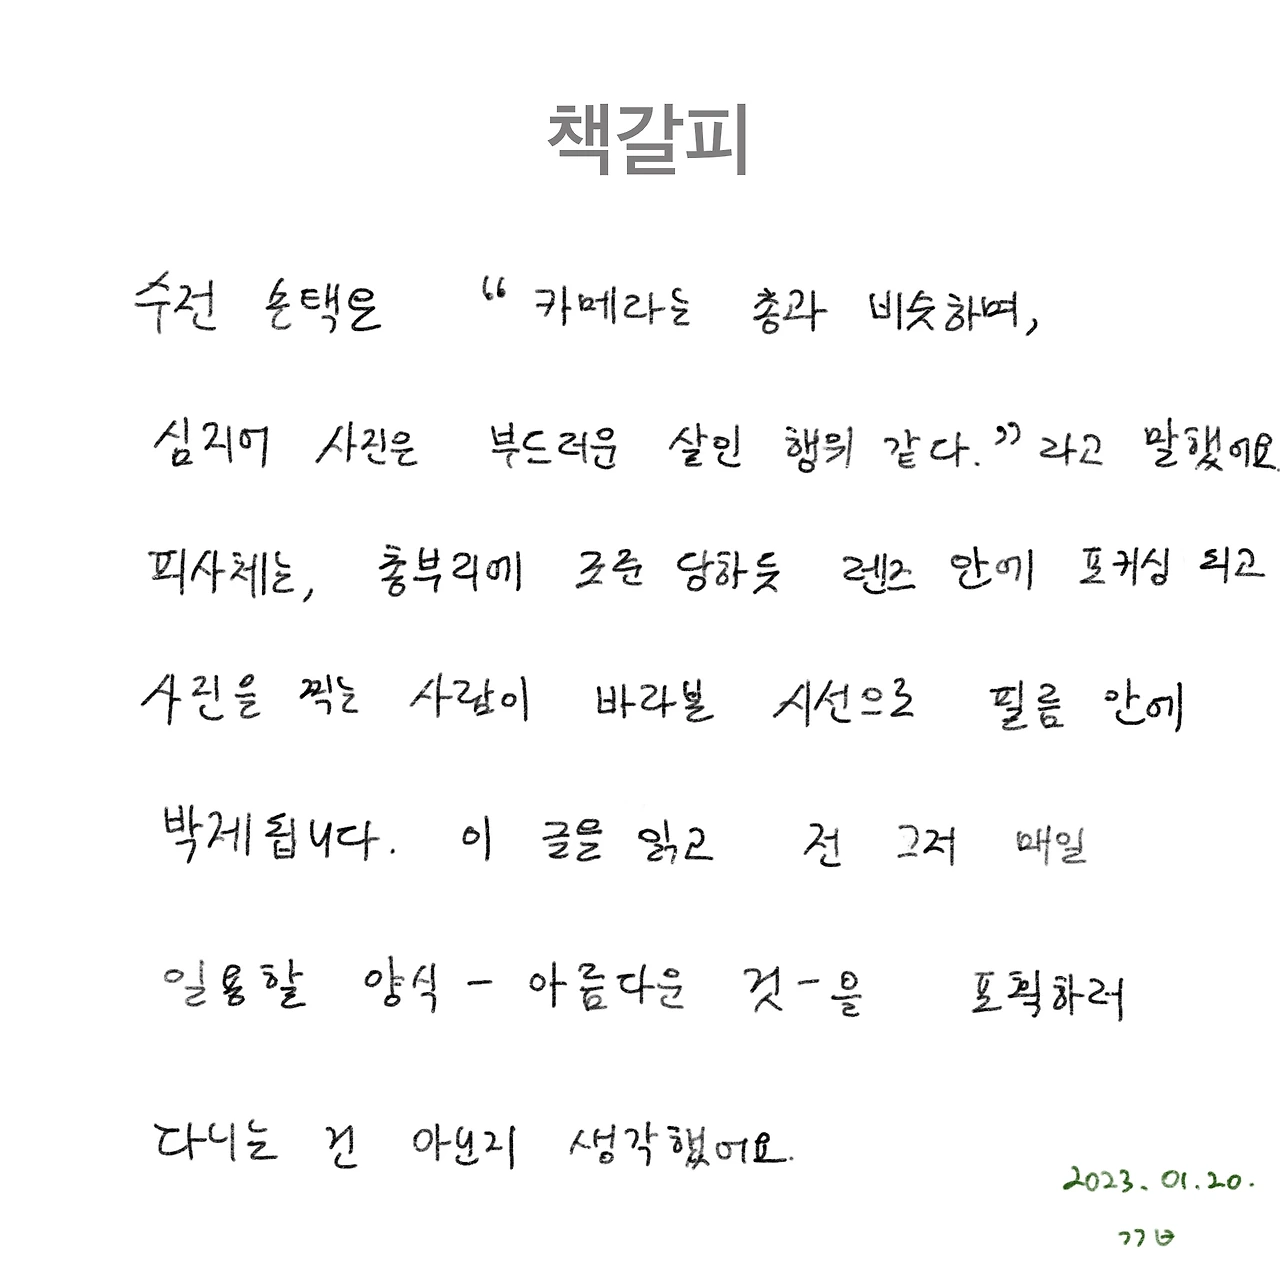 책갈피
수전 손택은 “카메라는 총과 비슷하며,
심지어 사진은 부드러운 살인 행위 같다.”라고 말했어요.
피사체는, 총부리에 조준 당하듯 렌즈 안에 포커싱 되고
사진을 찍는 사람이 바라볼 시선으로 필름 안에
박제됩니다. 이 글을 읽고 전 그저 매일
일용할 양식 - 아름다운 것 - 을 포획하러
다니는 건 아닌지 생각했어요.
2023. 01. 20.